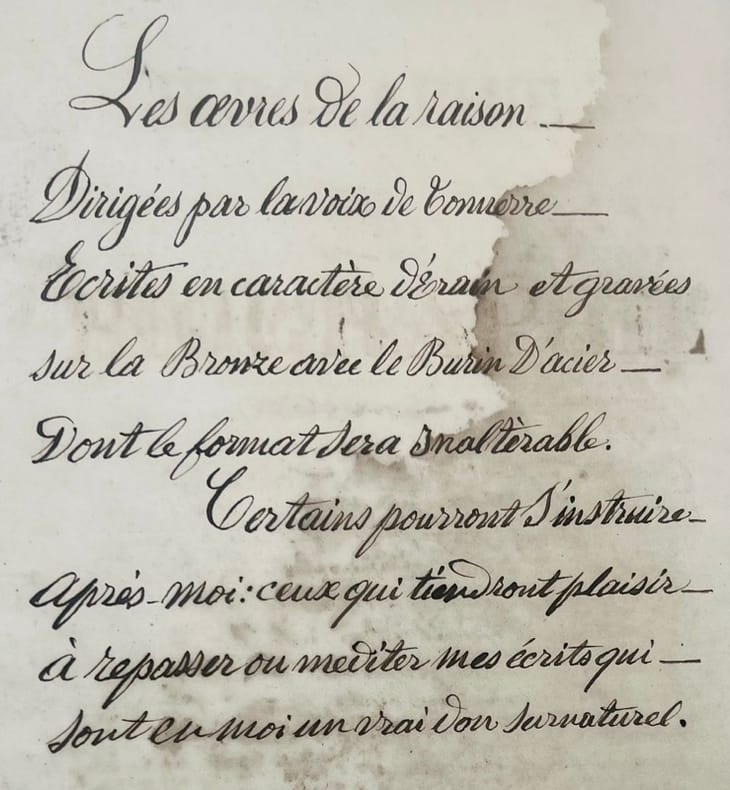 Les œvres de la raison —
Dirigées par la voix de Tonnerre —
Ecrites en caractère d'Érain et gravées
sur la Bronze avec le Burin D'acier —
Dont le format sera inaltèrable.
Certains pourront S'instruire —
Après-moi: ceux qui tiendront plaisir —
à repasser ou mediter mes écrits qui —
sont en moi un vrai don surnaturel.